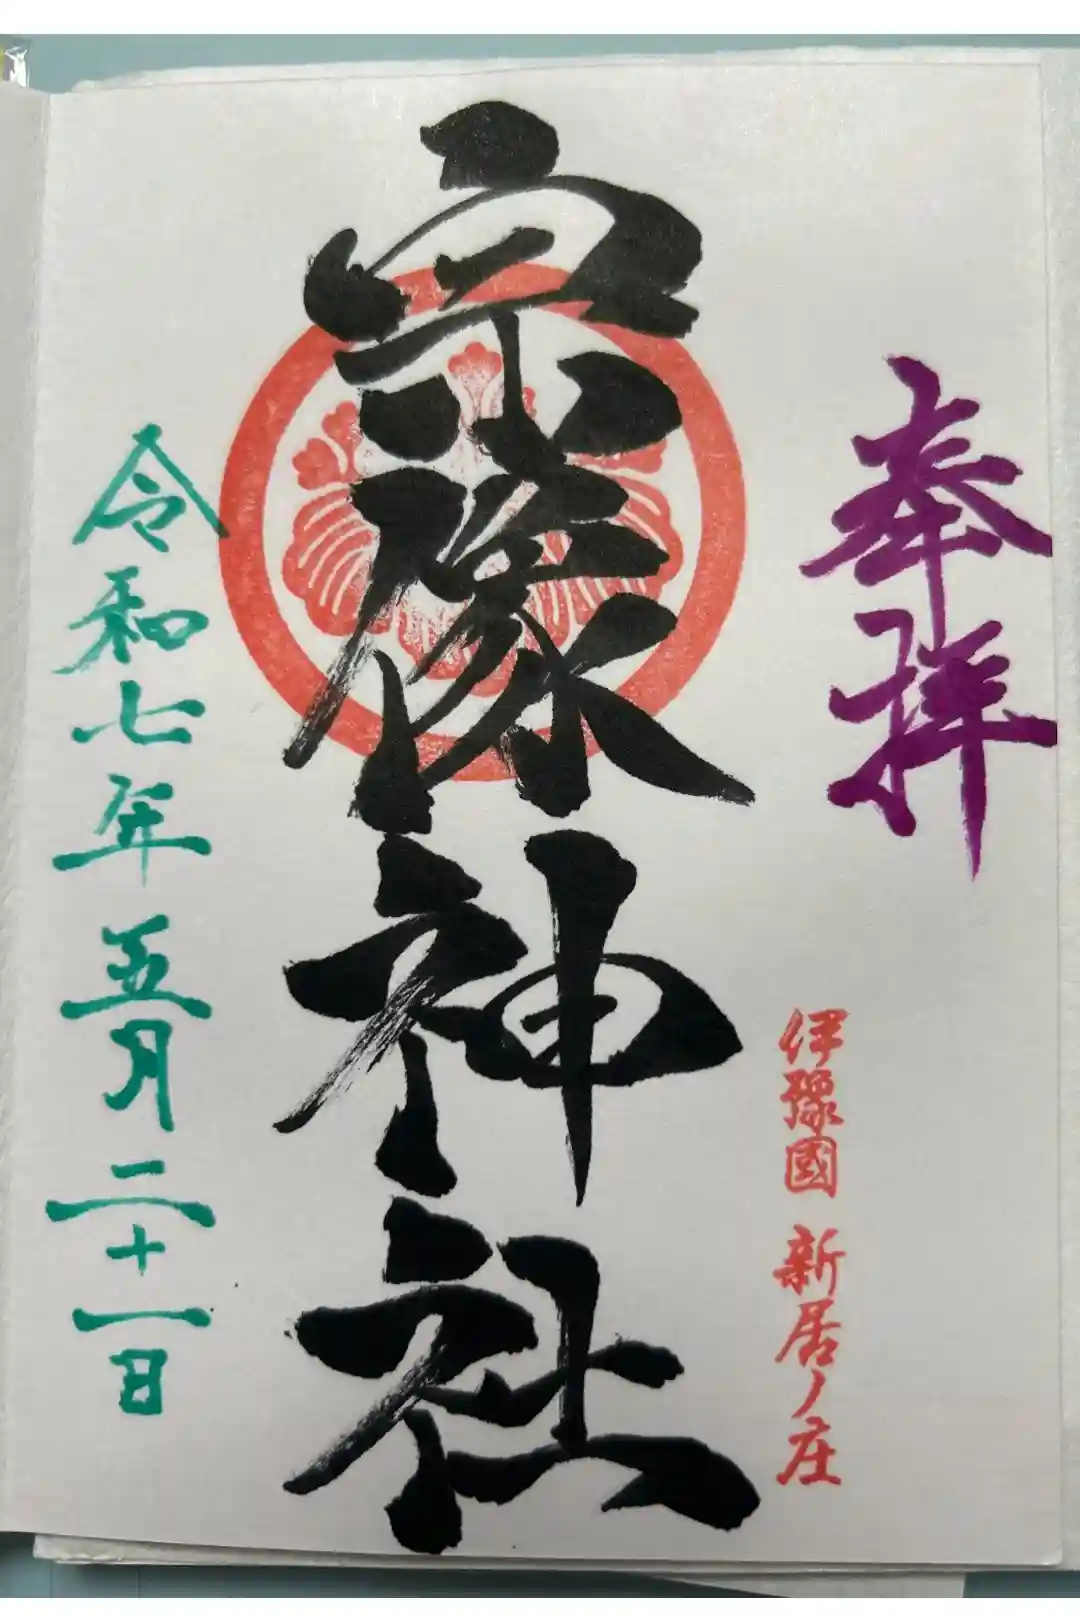 奉拝
伊豫國 新居ノ庄
宗像神社
令和七年 五月二十一日